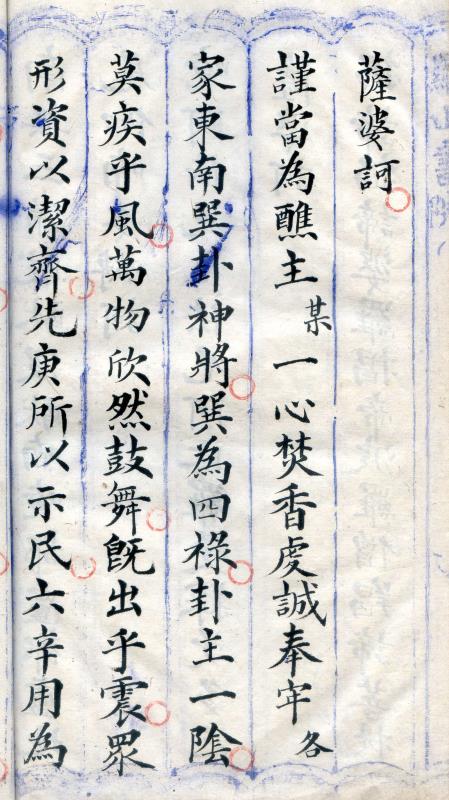 薩婆訶
謹當為醮主某一心焚香虔誠奉牢各
家東南巽卦神將巽為四祿卦主一陰
莫疾乎風萬物欣然鼓舞既出乎震眾
形資以潔齊先庚所以示民六辛用為